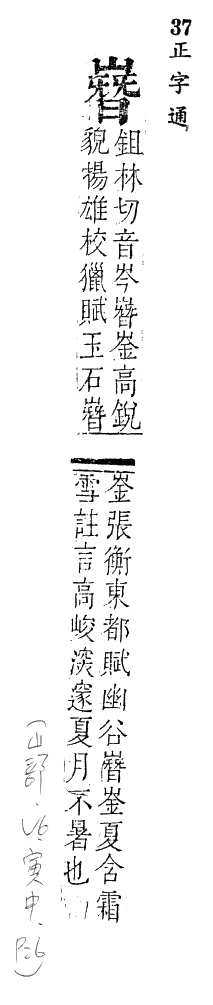 37正字通
嶜
鉏林切音岑嶜崟高銳
貌楊雄校獵賦玉石嶜
崟張衡東都賦幽谷嶜崟夏含霜
雪註言高峻深邃夏月不暑也
(山部 寅中